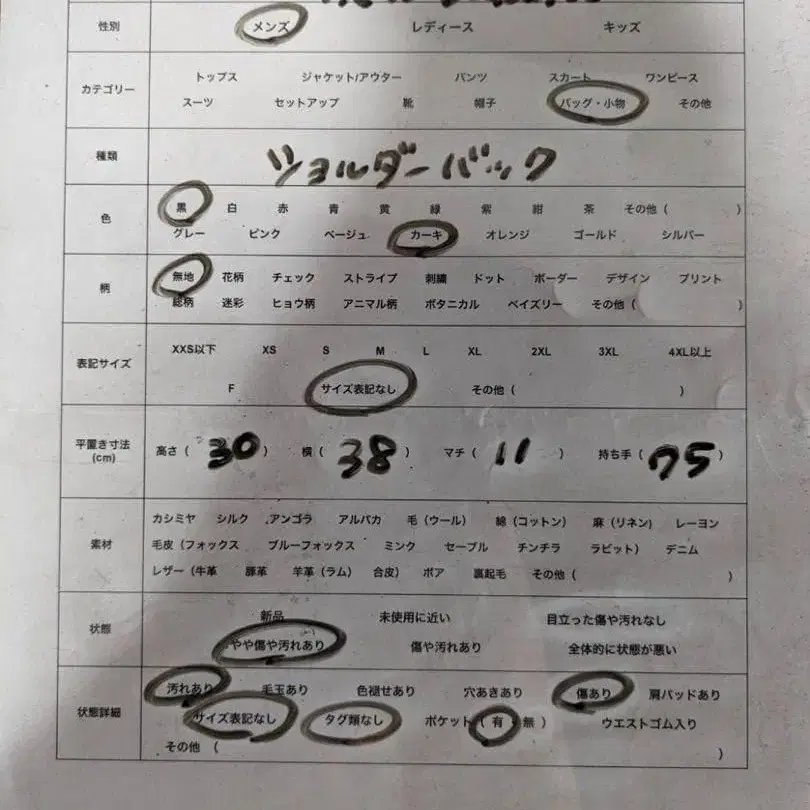 性別 メンズ レディース キッズ
カテゴリー トップス ジャケット/アウター パンツ スカート ワンピース
スーツ セットアップ 靴 帽子 バッグ・小物 その他
種類 ショルダーバック
色 黒 白 赤 青 黄 緑 紫 紺 茶 その他( )
グレー ピンク ベージュ カーキ オレンジ ゴールド シルバー
柄 無地 花柄 チェック ストライプ 刺繍 ドット ボーダー デザイン プリント
総柄 迷彩 ヒョウ柄 アニマル柄 ボタニカル ペイズリー その他( )
表記サイズ XXS以下 XS S M L XL 2XL 3XL 4XL以上
F サイズ表記なし その他( )
平置き寸法(cm) 高さ( 30 ) 横( 38 ) マチ( 11 ) 持ち手( 75 )
素材 カシミヤ シルク アンゴラ アルパカ 毛(ウール) 綿(コットン) 麻(リネン) レーヨン
毛皮(フォックス ブルーフォックス ミンク セーブル チンチラ ラビット) デニム
レザー(牛革 豚革 羊革(ラム) 合皮) ボア 裏起毛 その他( )
状態 新品 未使用に近い 目立った傷や汚れなし
やや傷や汚れあり 傷や汚れあり 全体的に状態が悪い
状態詳細 汚れあり 毛玉あり 色褪せあり 穴あきあり 傷あり 肩パッドあり
サイズ表記なし タグ類なし ポケット( 有・無 ) ウエストゴム入り
その他 ( )